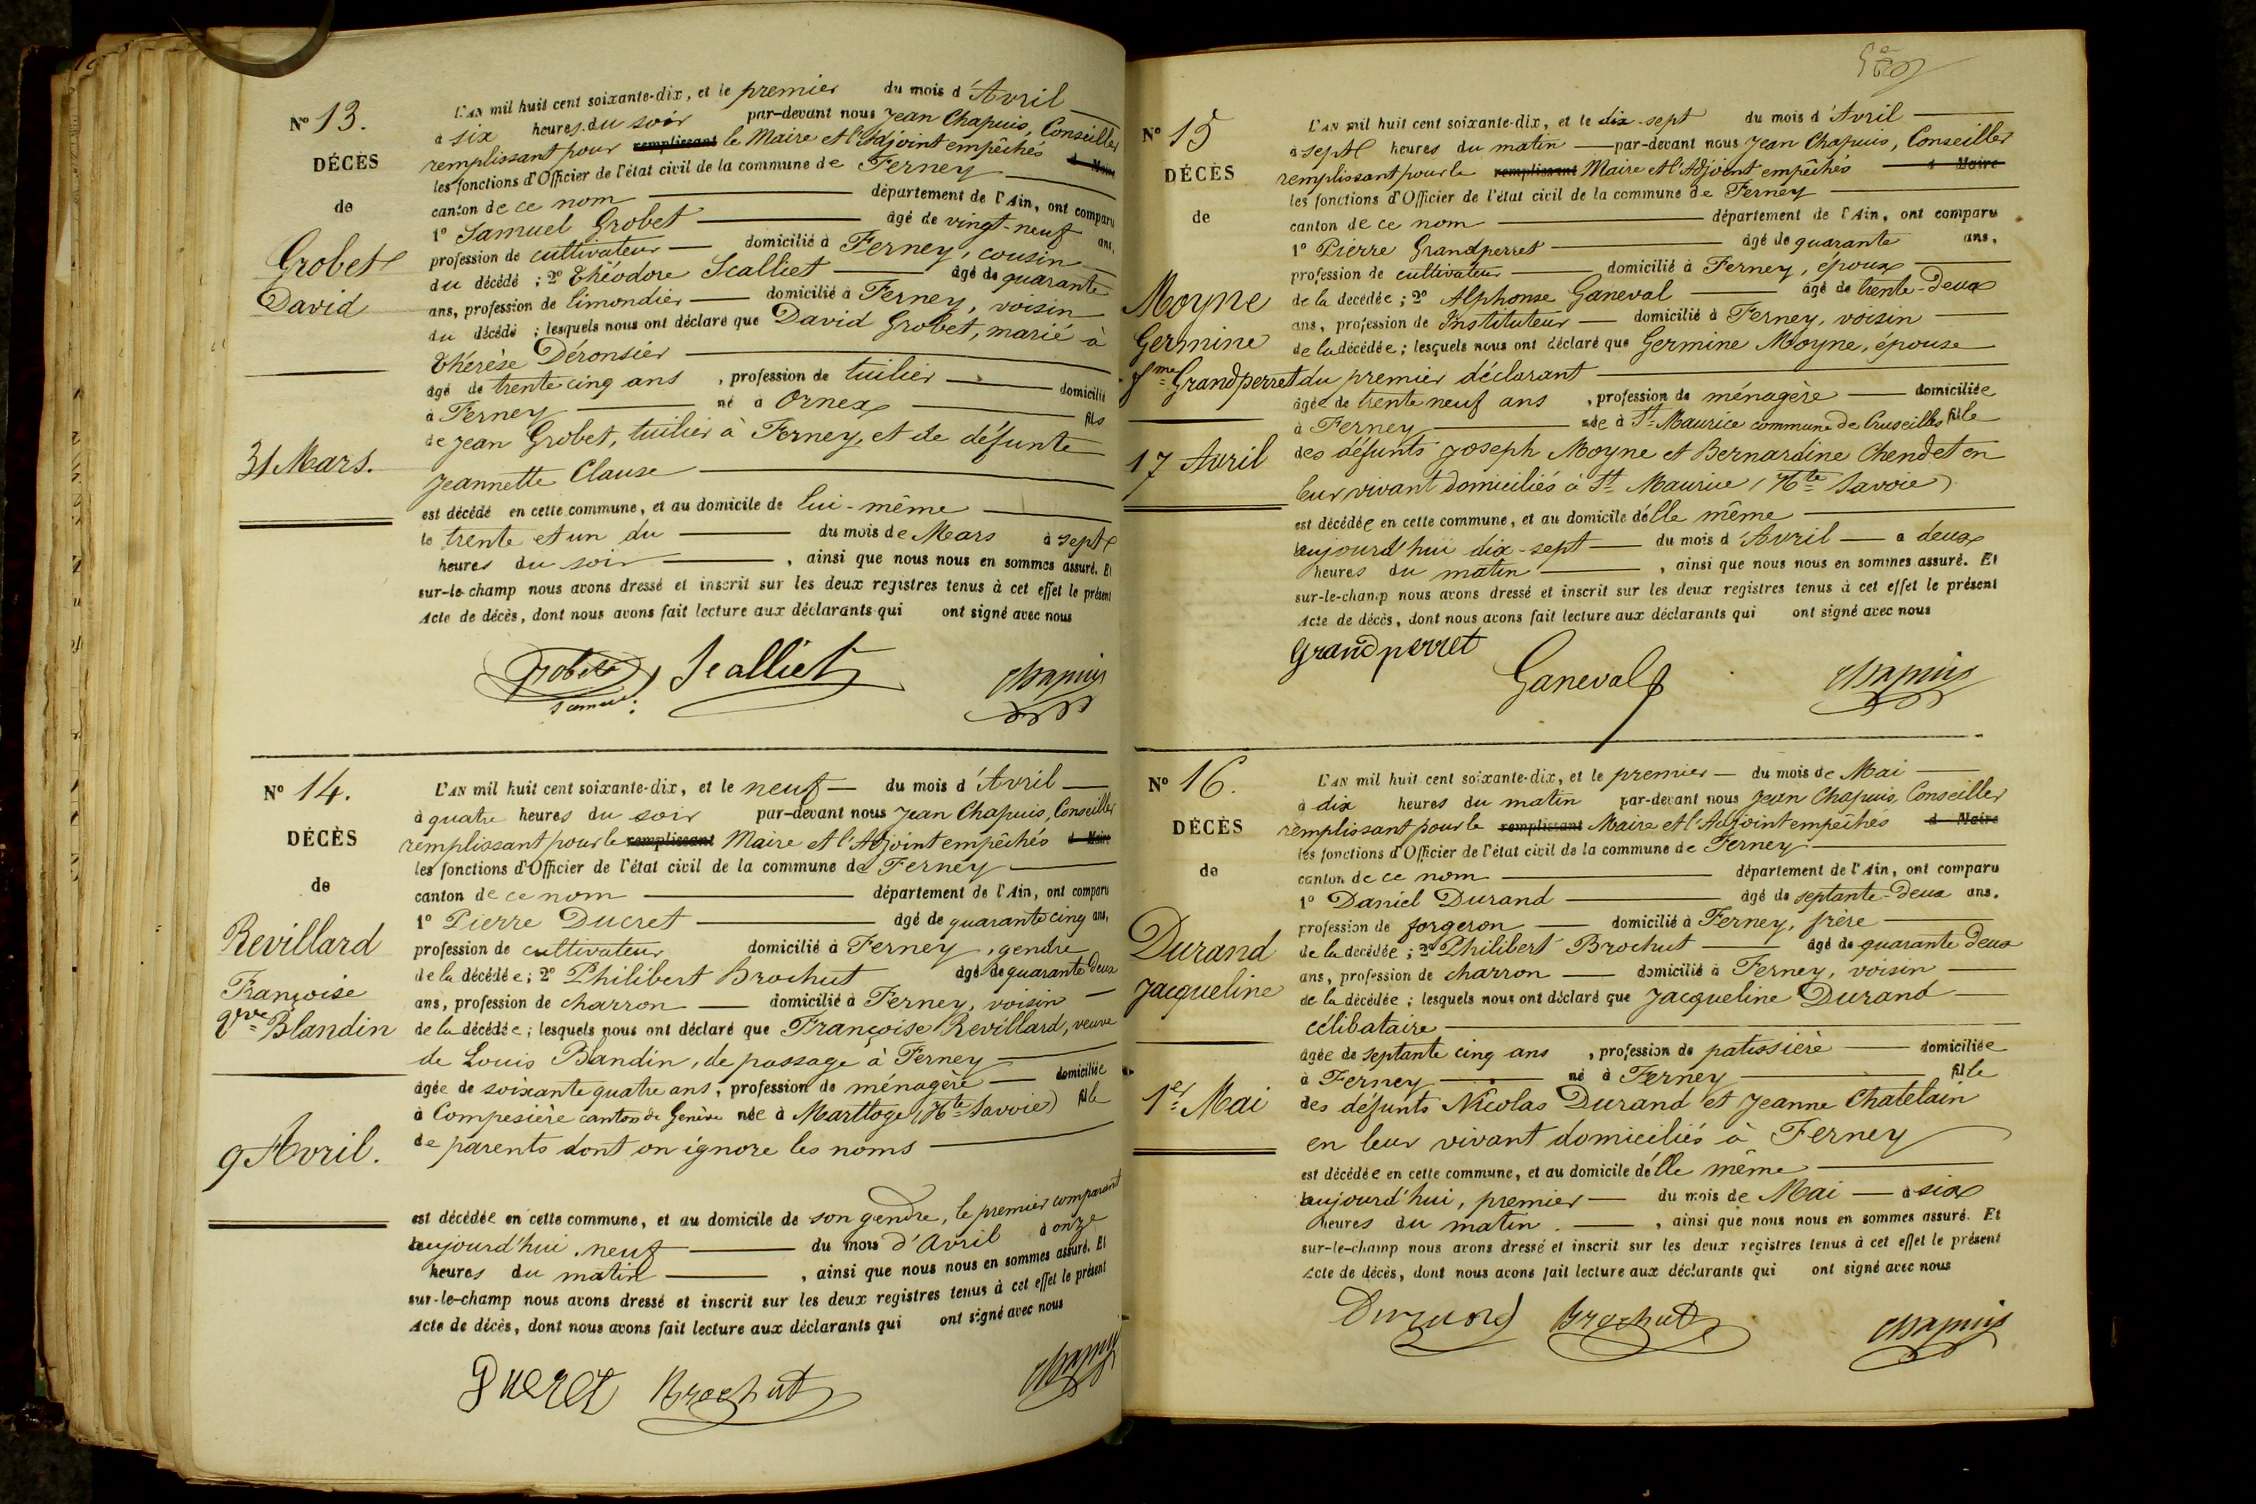 N° 13.
DÉCÈS
de
Grobet
David
31 Mars.
L'AN mil huit cent soixante-dix, et le premier du mois d'Avril
à six heures du soir par-devant nous Jean Chapuis, Conseiller
remplissant pour remplissant le Maire et l'Adjoint empêchés d Maire
les fonctions d'Officier de l'état civil de la commune de Ferney
canton de ce nom département de l'Ain, ont comparu
1° Samuel Grobet âgé de vingt-neuf ans,
profession de cultivateur domicilié à Ferney, cousin
du décédé ; 2° Théodore Scalliet âgé de quarante
ans, profession de limondier domicilié à Ferney, voisin
du décédé ; lesquels nous ont déclaré que David Grobet, marié à
Thérèse Déronsier
âgé de trente cinq ans, profession de tuilier domicilié
à Ferney né à Ornex fils
de Jean Grobet, tuilier à Ferney, et de défunte
Jeannette Clause
est décédé en cette commune, et au domicile de lui-même
le trente et un du du mois de Mars à sept
heures du soir, ainsi que nous nous en sommes assuré. Et
sur-le-champ nous avons dressé et inscrit sur les deux registres tenus à cet effet le présent
Acte de décès, dont nous avons fait lecture aux déclarants qui ont signé avec nous
Grobet Scalliet Chapuis
Samuel
N° 14.
DÉCÈS
de
Revillard
Françoise
Vve Blandin
9 Avril.
L'AN mil huit cent soixante-dix, et le neuf du mois d'Avril
à quatre heures du soir par-devant nous Jean Chapuis, Conseiller
remplissant pour le remplissant Maire et l'Adjoint empêchés d Maire
les fonctions d'Officier de l'état civil de la commune de Ferney
canton de ce nom département de l'Ain, ont comparu
1° Pierre Ducret âgé de quarante cinq ans,
profession de cultivateur domicilié à Ferney, gendre
de la décédée ; 2° Philibert Brochut âgé de quarante deux
ans, profession de charron domicilié à Ferney, voisin
de la décédée ; lesquels nous ont déclaré que Françoise Revillard, veuve
de Louis Blandin, de passage à Ferney
âgée de soixante quatre ans, profession de ménagère domiciliée
à Compesière canton de Genève née à Marttoge (Hte Savoie) fille
de parents dont on ignore les noms
est décédée en cette commune, et au domicile de son gendre, le premier comparant
aujourd'hui, neuf du mois d'Avril à onze
heures du matin, ainsi que nous nous en sommes assuré. Et
sur-le-champ nous avons dressé et inscrit sur les deux registres tenus à cet effet le présent
Acte de décès, dont nous avons fait lecture aux déclarants qui ont signé avec nous
Ducret Brochut Chapuis
N° 15
DÉCÈS
de
Moyne
Germine
fme Grandperret
17 Avril
L'AN mil huit cent soixante-dix, et le dix-sept du mois d'Avril
à sept heures du matin par-devant nous Jean Chapuis, Conseiller
remplissant pour le remplissant Maire et l'Adjoint empêchés d Maire
les fonctions d'Officier de l'état civil de la commune de Ferney
canton de ce nom département de l'Ain, ont comparu
1° Pierre Grandperret âgé de quarante ans,
profession de cultivateur domicilié à Ferney, époux
de la décédée ; 2° Alphonse Ganeval âgé de trente-deux
ans, profession de Instituteur domicilié à Ferney, voisin
de la décédée ; lesquels nous ont déclaré que Germine Moyne, épouse
du premier déclarant
âgée de trente neuf ans, profession de ménagère domiciliée
à Ferney née à St Maurice commune de Cruseilles fille
des défunts Joseph Moyne et Bernardine Chendet en
leur vivant domiciliés à St Maurice (Hte Savoie)
est décédée en cette commune, et au domicile d'elle même
aujourd'hui dix-sept du mois d'Avril à deux
heures du matin, ainsi que nous nous en sommes assuré. Et
sur-le-champ nous avons dressé et inscrit sur les deux registres tenus à cet effet le présent
Acte de décès, dont nous avons fait lecture aux déclarants qui ont signé avec nous
Grandperret Ganeval Chapuis
N° 16.
DÉCÈS
de
Durand
Jacqueline
1er Mai
L'AN mil huit cent soixante-dix, et le premier du mois de Mai
à dix heures du matin par-devant nous Jean Chapuis, Conseiller
remplissant pour le remplissant Maire et l'Adjoint empêchés d Maire
les fonctions d'Officier de l'état civil de la commune de Ferney
canton de ce nom département de l'Ain, ont comparu
1° Daniel Durand âgé de septante-deux ans,
profession de forgeron domicilié à Ferney, frère
de la décédée ; 2° Philibert Brochut âgé de quarante deux
ans, profession de charron domicilié à Ferney, voisin
de la décédée ; lesquels nous ont déclaré que Jacqueline Durand
célibataire
âgée de septante cinq ans, profession de patissière domiciliée
à Ferney né à Ferney fille
des défunts Nicolas Durand et Jeanne Chatelain
en leur vivant domiciliés à Ferney
est décédée en cette commune, et au domicile d'elle même
aujourd'hui, premier du mois de Mai à six
heures du matin, ainsi que nous nous en sommes assuré. Et
sur-le-champ nous avons dressé et inscrit sur les deux registres tenus à cet effet le présent
Acte de décès, dont nous avons fait lecture aux déclarants qui ont signé avec nous
Durand Brochut Chapuis